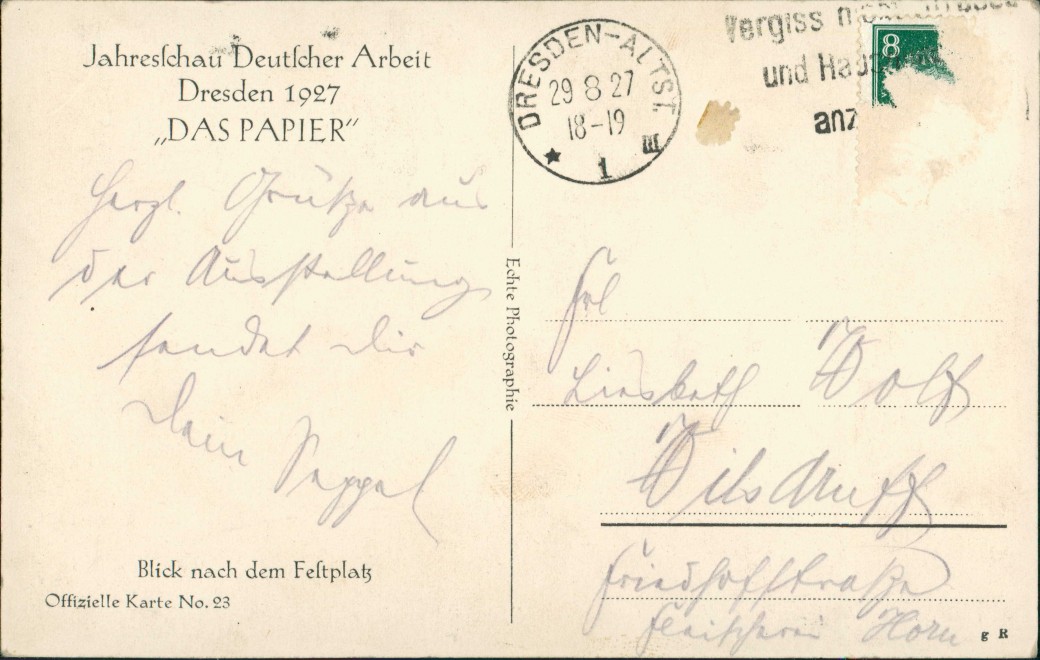 Jahresſchau Deutſcher Arbeit
Dresden 1927
„DAS PAPIER“
Herzl. Grüße aus
der Ausstellung
sendet Dir
Dein Seppel
Blick nach dem Feſtplatz
Offizielle Karte No. 23
Echte Photographie
DRESDEN-ALTST.
29 8 27
18-19
★ 1 m
Vergiss
und
anz
8
Frl
Liesbeth Wolf
Wilsdruff
Friedhofstraße
Fleischerei Horn
g R